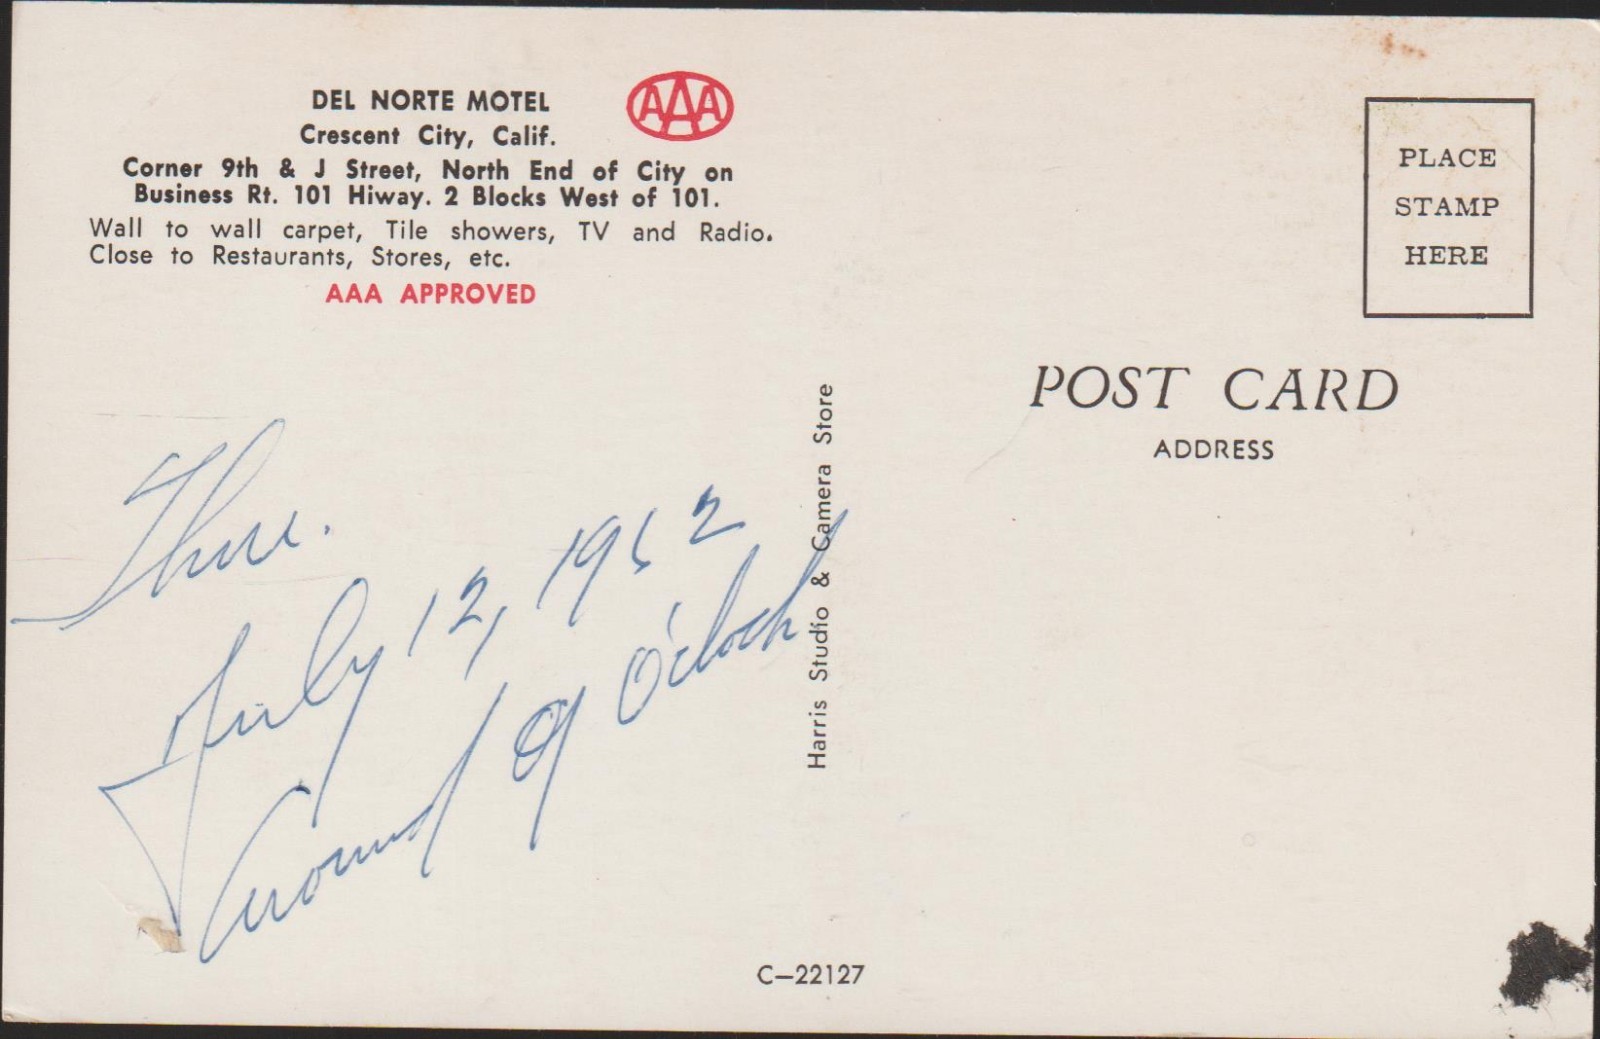 DEL NORTE MOTEL
Crescent City, Calif.
AAA
Corner 9th & J Street, North End of City on
Business Rt. 101 Hiway. 2 Blocks West of 101.
Wall to wall carpet, Tile showers, TV and Radio.
Close to Restaurants, Stores, etc.
AAA APPROVED
Thur.
July 12, 1962
Around 9 O'clock
Harris Studio & Camera Store
C-22127
PLACE
STAMP
HERE
POST CARD
ADDRESS